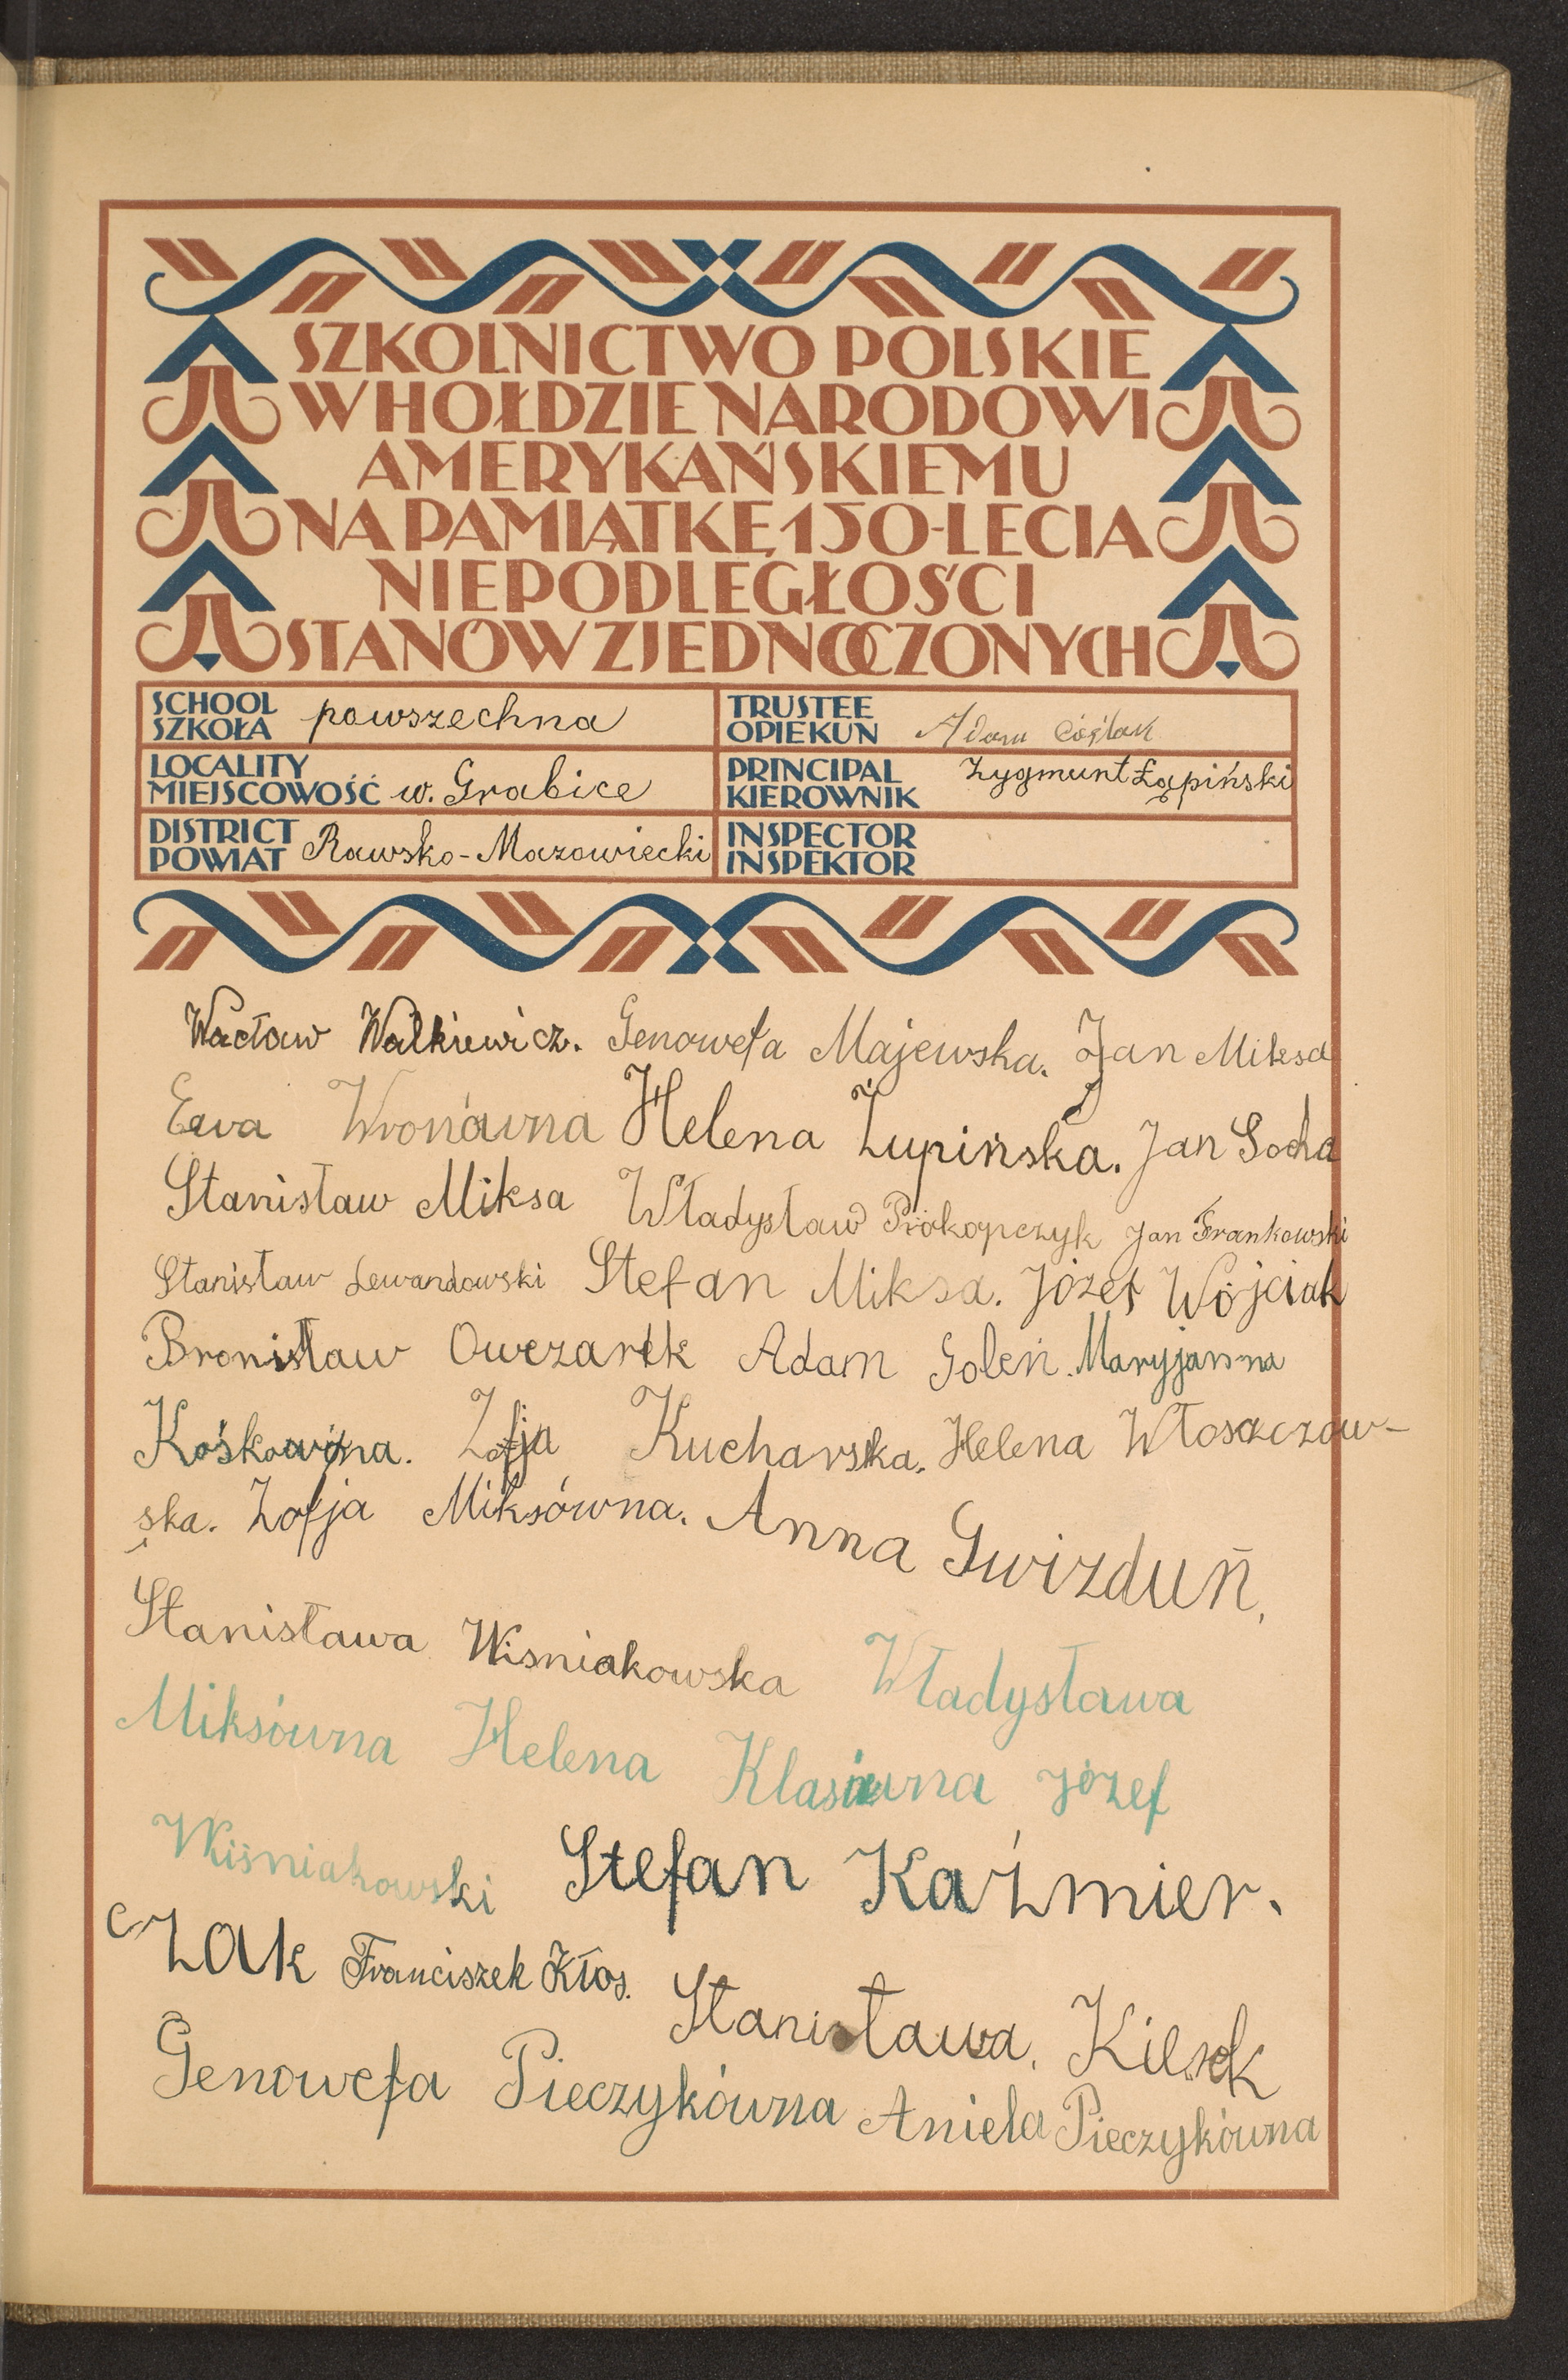 SZKOLNICTWO POLSKIE
W HOŁDZIE NARODOWI
AMERYKAŃSKIEMU
NA PAMIĄTKĘ 150-LECIA
NIEPODLEGŁOŚCI
STANÓW ZJEDNOCZONYCH
SCHOOL
SZKOŁA powszechna
TRUSTEE
OPIEKUN Adam
LOCALITY
MIEJSCOWOŚĆ w. Grabice
PRINCIPAL
KIEROWNIK Zygmunt Łapiński
DISTRICT
POWIAT Rawsko-Mazowiecki
INSPECTOR
INSPEKTOR
Wacław Walkiewicz. Genowefa Majewska. Jan Miksa
Ewa Wronówna Helena Łupińska. Jan Socha
Stanisław Miksa Władysław Prokopczyk Jan Frankowski
Stanisław Lewandowski Stefan Miksa. Józef Wójciak
Bronisław Owczarek Adam Goleń. Maryjanna
Kośkówna. Zofja Kucharska. Helena Włoszczow-
ska. Zofja Miksówna. Anna Gwizduń,
Stanisława Wiśniakowska Władysława
Miksówna Helena Klasiówna Józef
Wiśniakowski Stefan Kaźmier.
czak Franciszek Kłos. Stanisława.
Genowefa Pieczykówna Aniela Pieczykówna